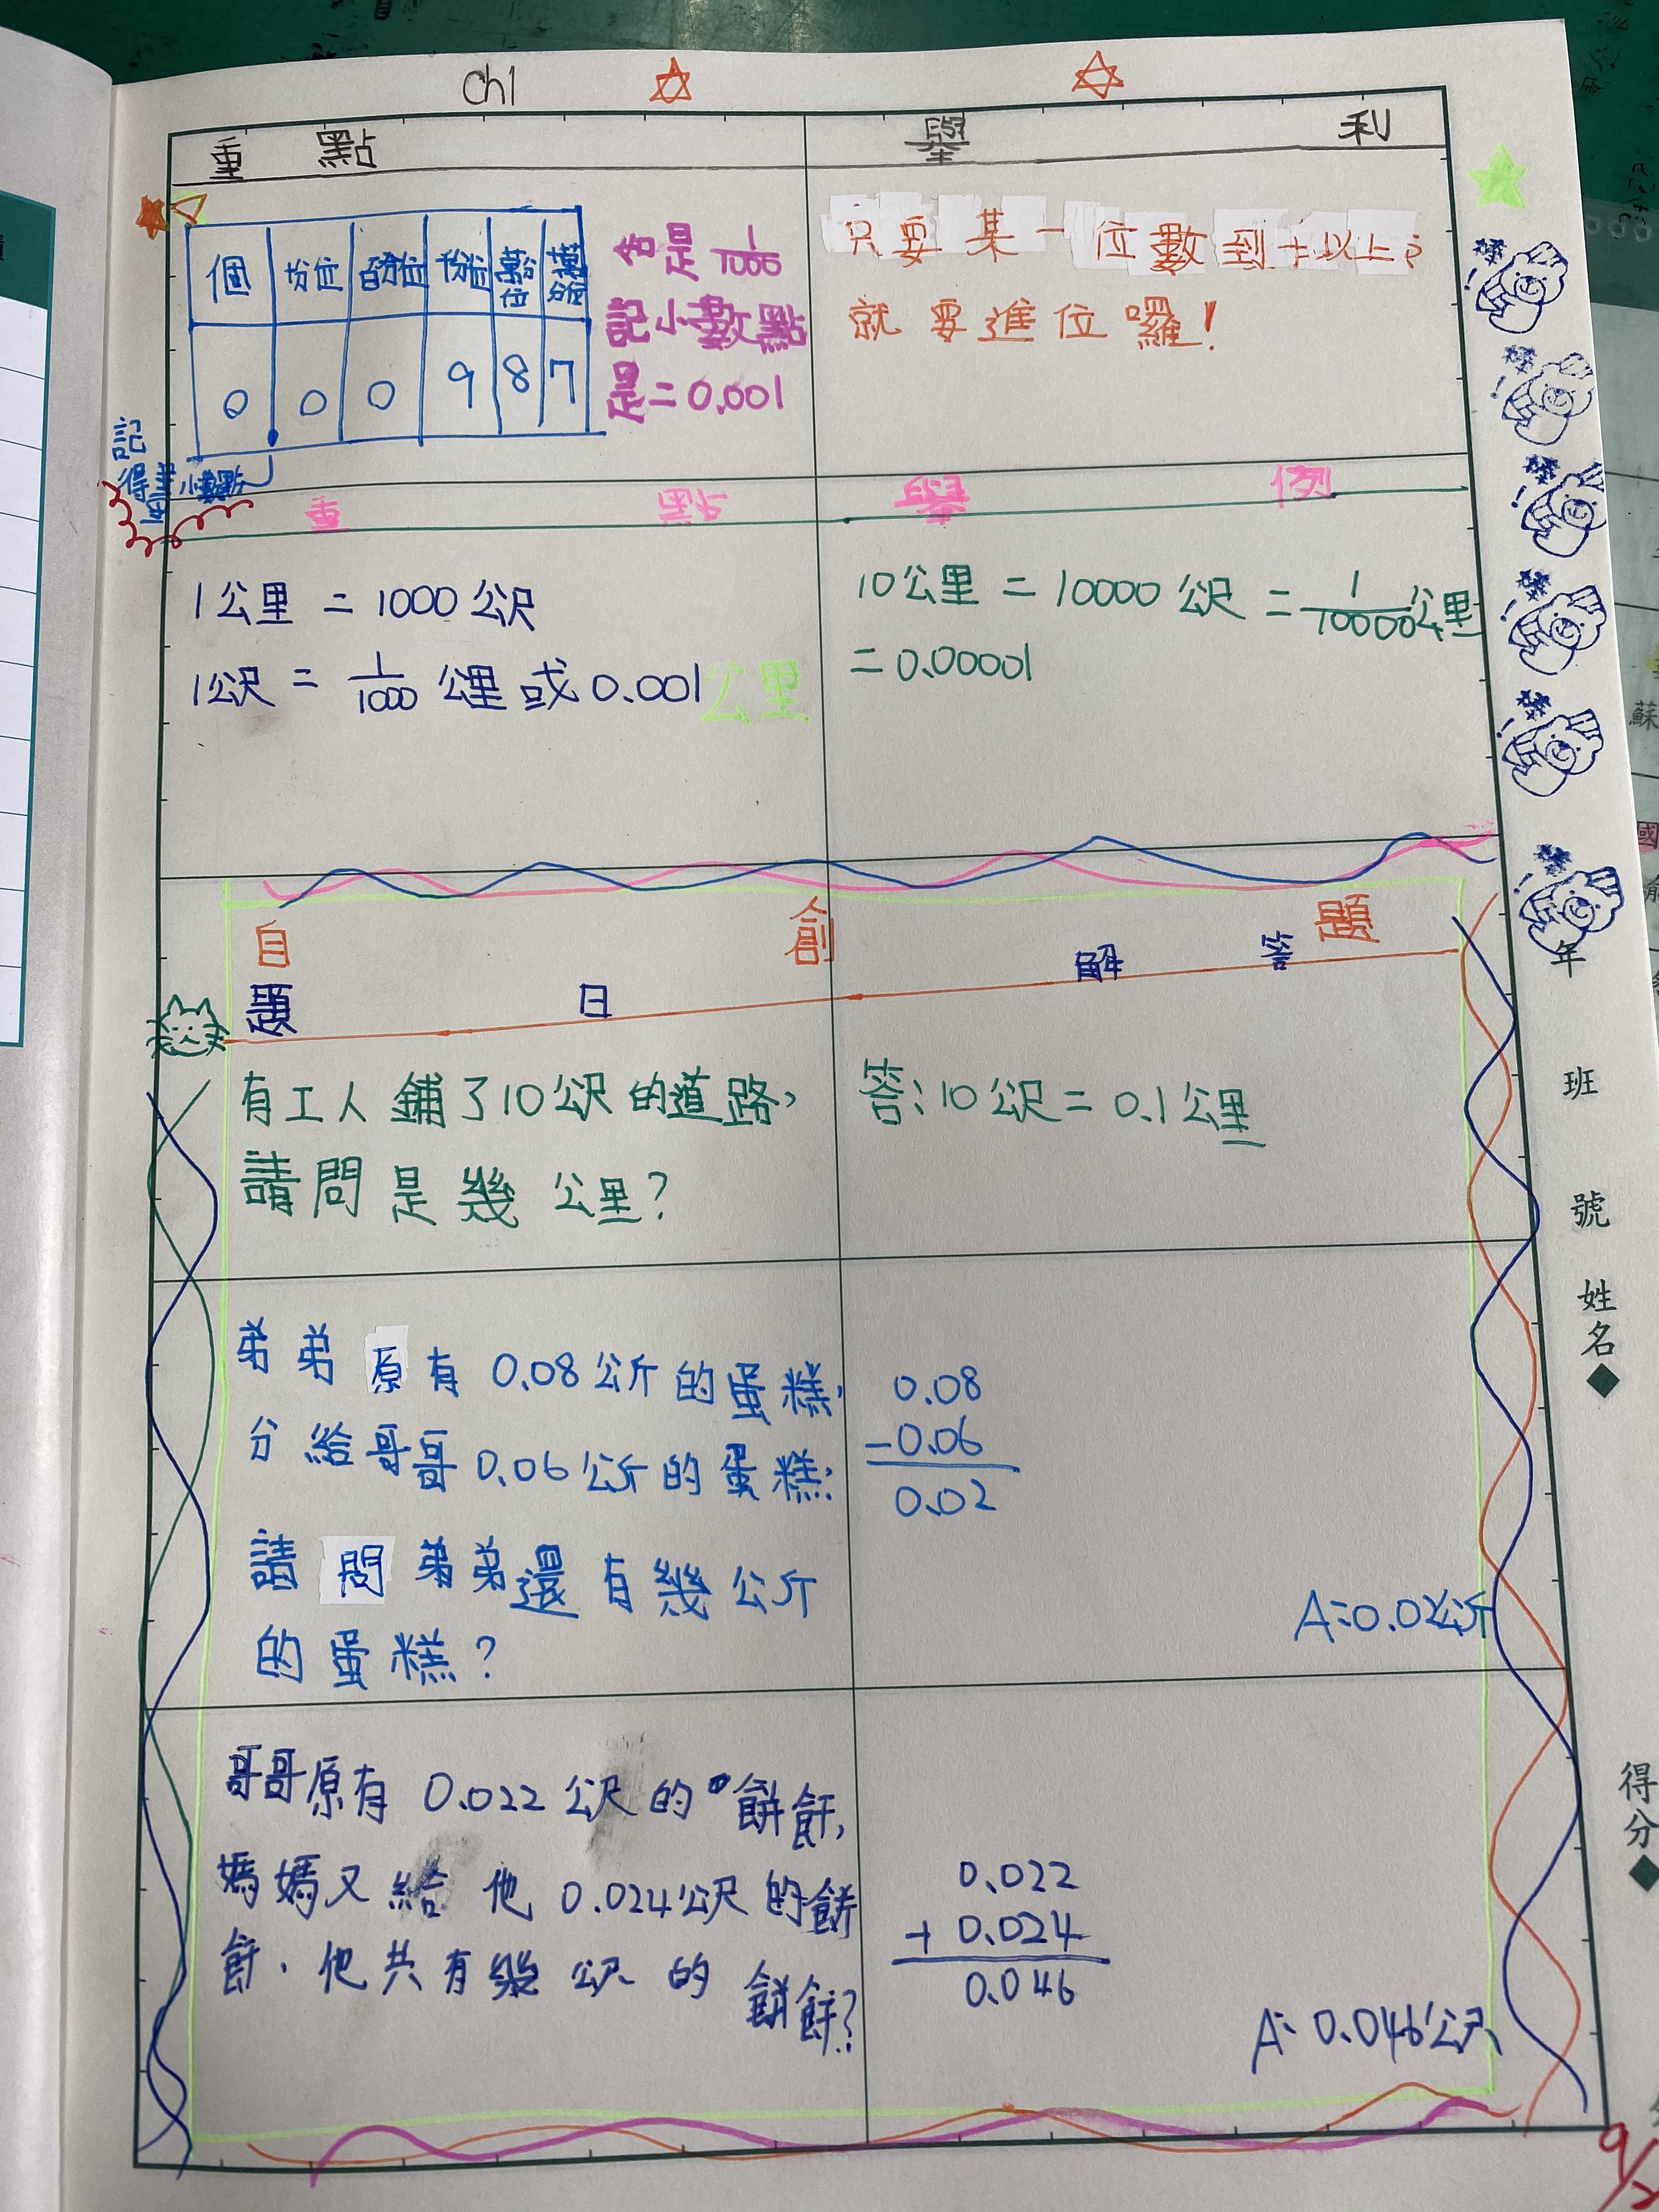 Ch1
重 點 舉 利
個 份位 百份位 份位 萬份位
0 0 0 9 8 7
是 1/1000
記小數點
是=0.001
記得 小數點
只要某一位數到十以上,
就要進位囉!
重 點 舉 例
1公里 = 1000公尺
1公尺 = 1/1000 公里 或 0.001公里
10公里 = 10000 公尺 = 1/10000公里
= 0.00001
自 創 題
題 日 解 答
有工人鋪了10公尺的道路,
請問是幾公里?
答:10公尺 = 0.1公里
弟弟原有 0.08公斤的蛋糕,
分給哥哥 0.06公斤的蛋糕,
請問弟弟還有幾公斤
的蛋糕?
0.08
-0.06
0.02
A:0.02公斤
哥哥原有 0.022公尺的餅飦,
媽媽又給他 0.024公尺的餅
飦.他共有幾公尺的餅飦?
0.022
+ 0.024
0.046
A: 0.046公尺
年
班
號
姓名◆
得分◆